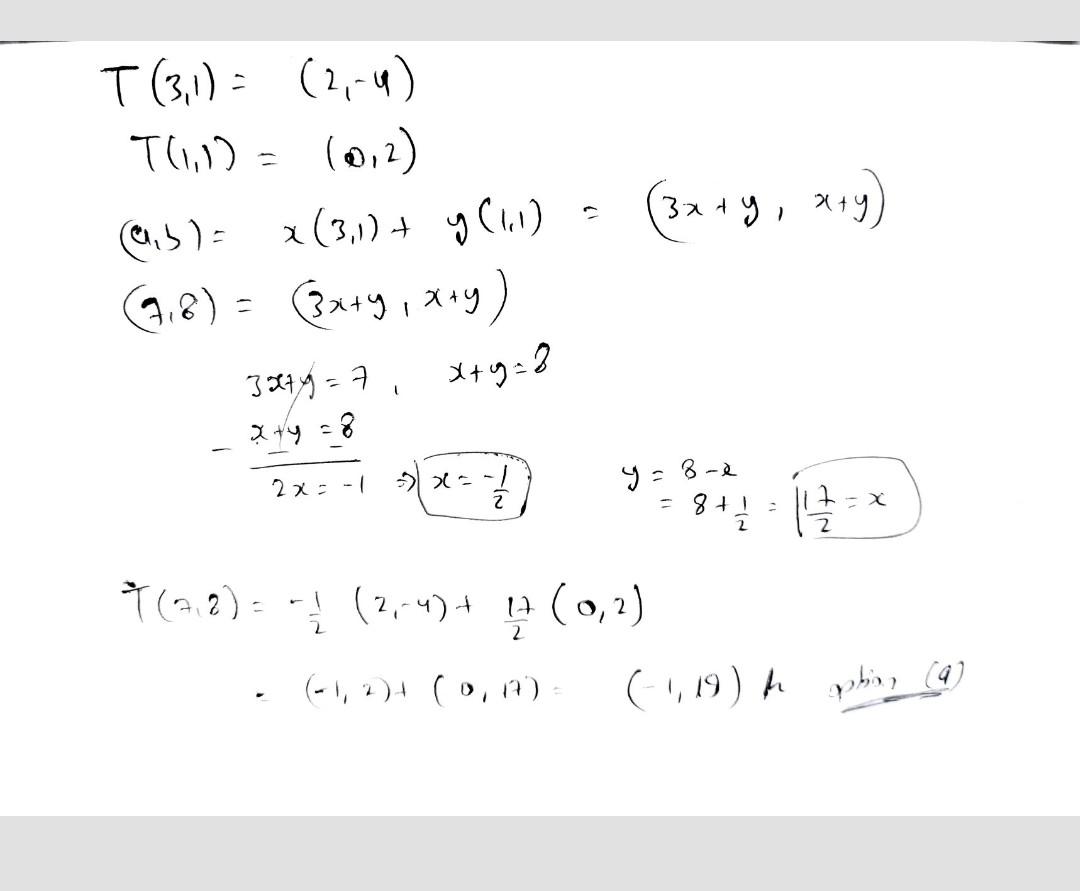 T(3,1) = (2,-4)
T(1,1) = (0,2)
(a,b) = x(3,1) + y(1,1) = (3x+y, x+y)
(7,8) = (3x+y, x+y)
3x+y = 7, x+y = 8
- x+y = 8
2x = -1 ⇒ x = -1/2
y = 8-x
= 8 + 1/2 = 17/2 = x
T(7,8) = -1/2 (2,-4) + 17/2 (0,2)
= (-1, 2) + (0, 17) = (-1, 19) option (a)